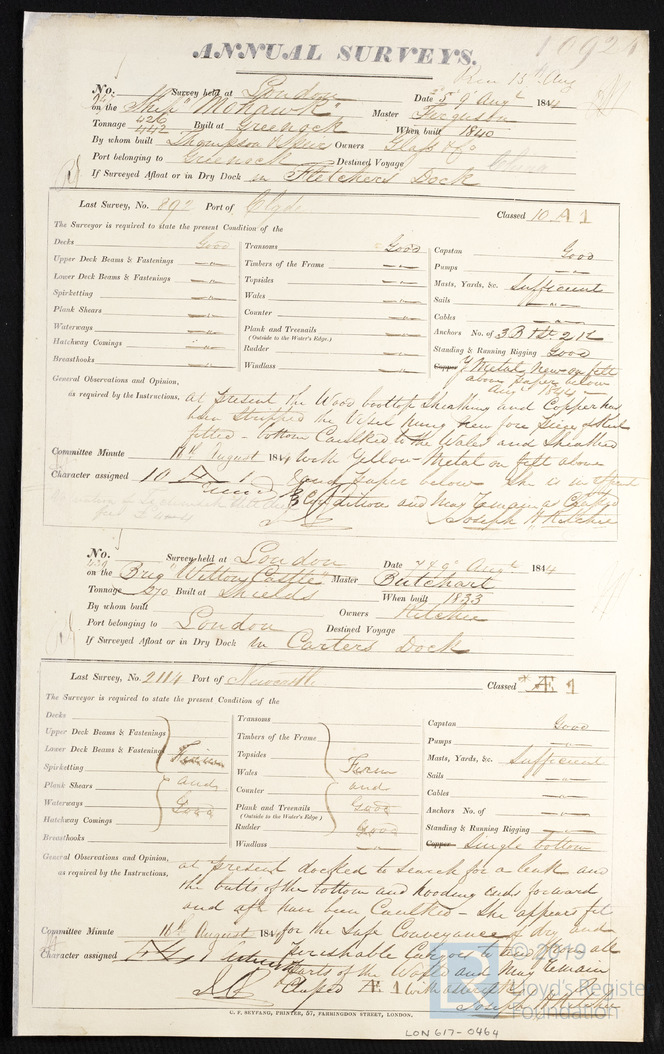 10924
ANNUAL SURVEYS.
Rec 13th Aug
No. Survey held at London Date 5 9 Augt 1844
on the Ship "Mohawk" Master Ferguson
Tonnage 426 442 Built at Greenock When built 1840
By whom built Thompson & Owners
Port belonging to Greenock Destined Voyage China
If Surveyed Afloat or in Dry Dock in Fletchers Dock
Last Survey, No. 892 Port of Clyde Classed 10 A 1
The Surveyor is required to state the present Condition of the
Decks Good
Upper Deck Beams & Fastenings "
Lower Deck Beams & Fastenings "
Spirketting "
Plank Shears "
Waterways "
Hatchway Comings "
Breasthooks "
Transoms Good
Timbers of the Frame "
Topsides "
Wales "
Counter "
Plank and Treenails "
(Outside to the Water's Edge.)
Rudder "
Windlass "
Capstan Good
Pumps "
Masts, Yards, &c. Sufficient
Sails "
Cables "
Anchors No. of 3 B 1 St. 2 K
Standing & Running Rigging Good
Copper Y Metal New on felt
above paper below
Augt 1844
General Observations and Opinion,
as required by the Instructions,
at present the Wood boottop Sheathing and Copper has
been stripped the Vessel hung New fore
fitted - bottom Caulked to the Wales and Sheathed
Committee Minute 16th August 1844 with Yellow Metal on felt above
Character assigned 10 A 1 and paper below She is in
Condition and May remain as Classed
Joseph H Ritchie
No. Survey held at London Date 7 & 9 Augt 1844
on the Brig "Witton Castle" Master Butchart
Tonnage 270 Built at Shields When built 1833
By whom built Owners Ritchie
Port belonging to London Destined Voyage
If Surveyed Afloat or in Dry Dock in Carters Dock
Last Survey, No. 2114 Port of Newcastle Classed Æ 1
The Surveyor is required to state the present Condition of the
Decks
Upper Deck Beams & Fastenings
Lower Deck Beams & Fastenings
Spirketting
Plank Shears
Waterways
Hatchway Comings
Breasthooks
Firm
and
Good
Transoms
Timbers of the Frame
Topsides
Wales
Counter
Plank and Treenails
(Outside to the Water's Edge.)
Firm
and
Good
Rudder Good
Windlass "
Capstan Good
Pumps "
Masts, Yards, &c. Sufficient
Sails "
Cables "
Anchors No. of "
Standing & Running Rigging "
Copper Single bottom
General Observations and Opinion,
as required by the Instructions,
at present docked to search for a leak and
the butts of the bottom and hooding ends forward
and aft have been Caulked - She appears fit
Committee Minute 16th August 1844 for the Safe Conveyance of dry and
Character assigned Æ 1 Perishable Cargoes to and from all
Parts of the World and May remain
Classed Æ 1
Joseph H Ritchie
© 2019
Lloyd's Register
Foundation
C. F. SEYFANG, PRINTER, 57, FARRINGDON STREET, LONDON.
LON 617-0464